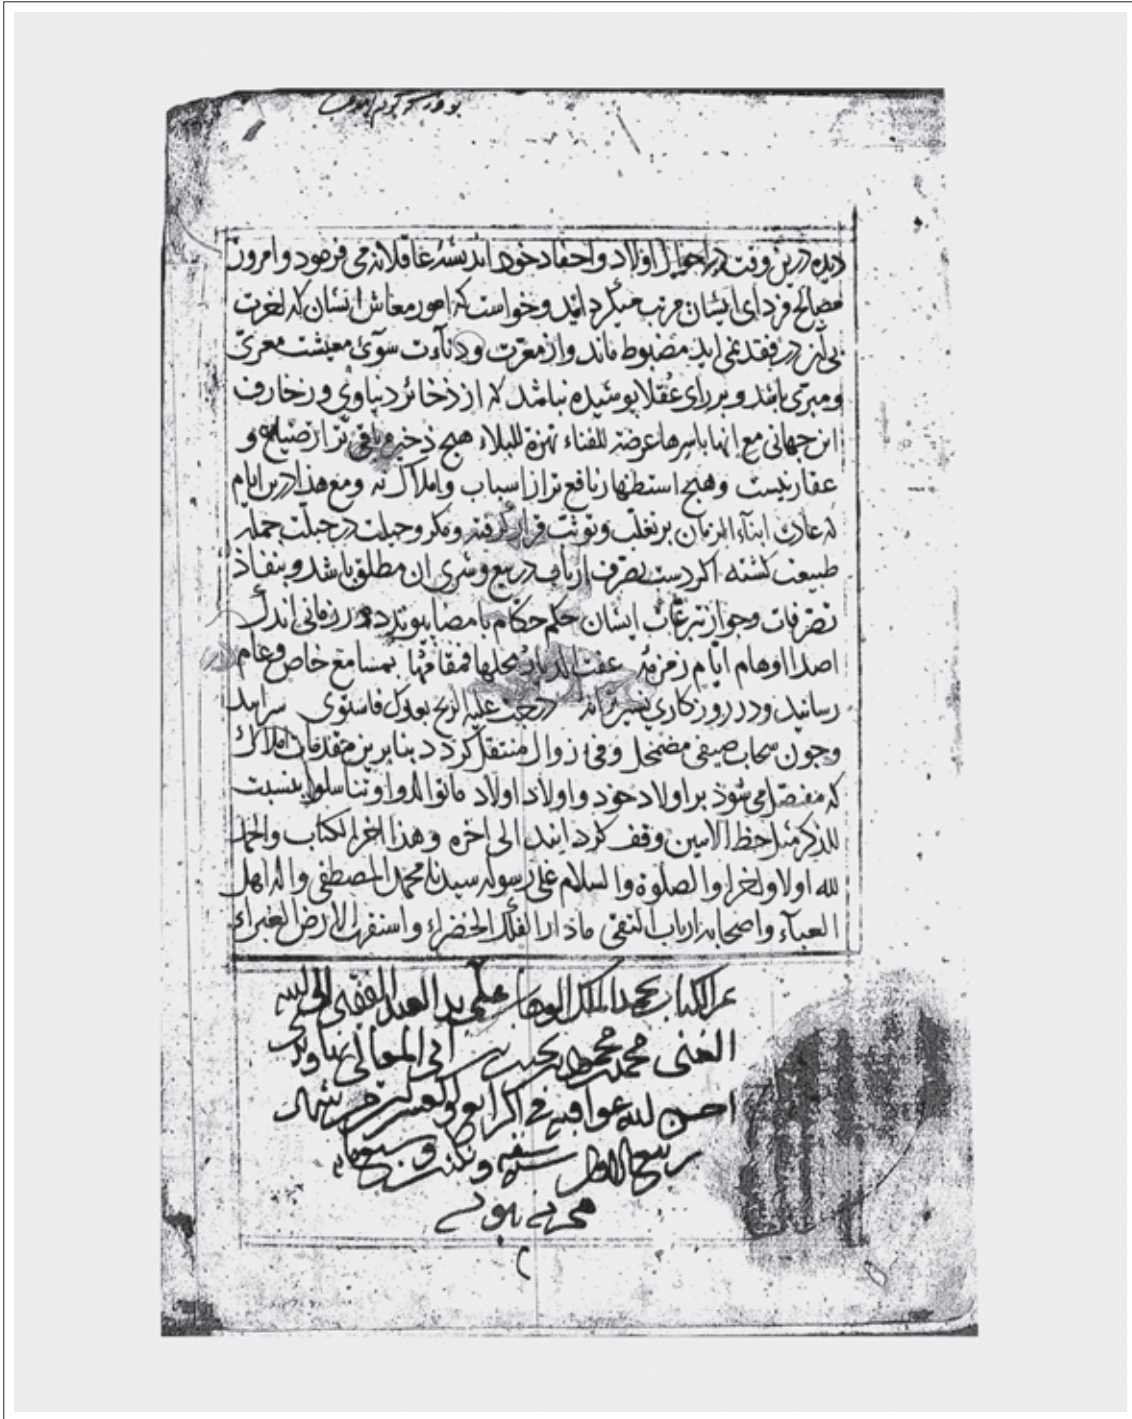 دیده درین وقت در احوال اولاد و احفاد خود اندیشهٔ عاقلانه می فرمود و امروز
مصالح فردای ایشان مرتب میگردانید و خواست که امور معاش ایشان که لغرت
بی آن در بقعد نمی اید مضبوط ماند و از معرّت و دنآءت سوئ معیشت معرّی
و مبرّی باشد و بر رای عُقلا پوشیده نباشد که از ذخائر دنیاوی و زخارف
این جهانی مع انها باسرها عرضة للفناء نهزة للبلاء هیچ ذخیره باقی تر از ضیاع و
عقار نیست و هیچ استظهار نافع تر از اسباب و املاک نه و مع هذا درین ایام
که عادت ابنآء الزمان بر تغلّب و توثّب قرار گرفته و مکر و حیلت در جبلّت جمله
طبیعت کشته اکر دست تصرف ارباب در بیع و شری ان مطلق باشد و بنفاذ
تصرفات و جواز تبرعات ایشان حکم حکام بامضا پیوندد در زمانی اندک
اصدا اوهام ایام زمزمهٔ عفت الدیار محلها فمقامها بمسامع خاص و عام
رسانید و در روزکاری جرت علیه الریح بعدک فاستوی سراید
و چون سحاب صیفی مضمحل و فئ زوال منتقل کردد بنا برین مقدمات املاک
که مفصّل می شوذ بر اولاد خوذ و اولاد اولاد ما توالدوا و تناسلوا بنسبت
للذکر مثل حظ الانثیین وقف کردانید الی اخره و هذا اخر الکتاب والحمد
لله اولا واخرا والصلوة والسلام علی رسوله سیدنا محمد المصطفی واله اهل
العبآء واصحابه ارباب التقی ما دار الفلک الخضراء واستقرت الارض الغبراء
تم الکتاب بحمد الملک الوهاب علی ید العبد الفقیر الی الله
الغنی محمد بن محمد بن یحیی بن ابی المعالی
احسن الله عواقبه فی من شهر
ربیع الاول سنه و سبعمایه